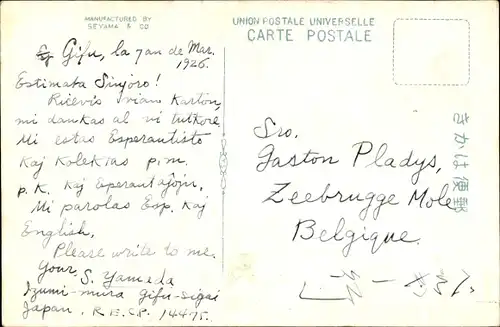 MANUFACTURED BY
SEYAMA & CO
Gifu, la 7an de Mar.
1926.
Estimata Sinjoro!
Ricevis vian Karton,
mi dankas al vi tutkore.
Mi estas Esperantisto
Kaj Kolektas p.m.
p.k. Kaj Esperantaĵojn.
Mi parolas Esp. Kaj
English.
Please write to me.
Your S. Yameda
Izumi-mura Gifu-sigai
Japan. R.E.C.P. 14475.
UNION POSTALE UNIVERSELLE
CARTE POSTALE
Sro.
Gaston Pladys,
Zeebrugge Mole
Belgique.
きかは便郵